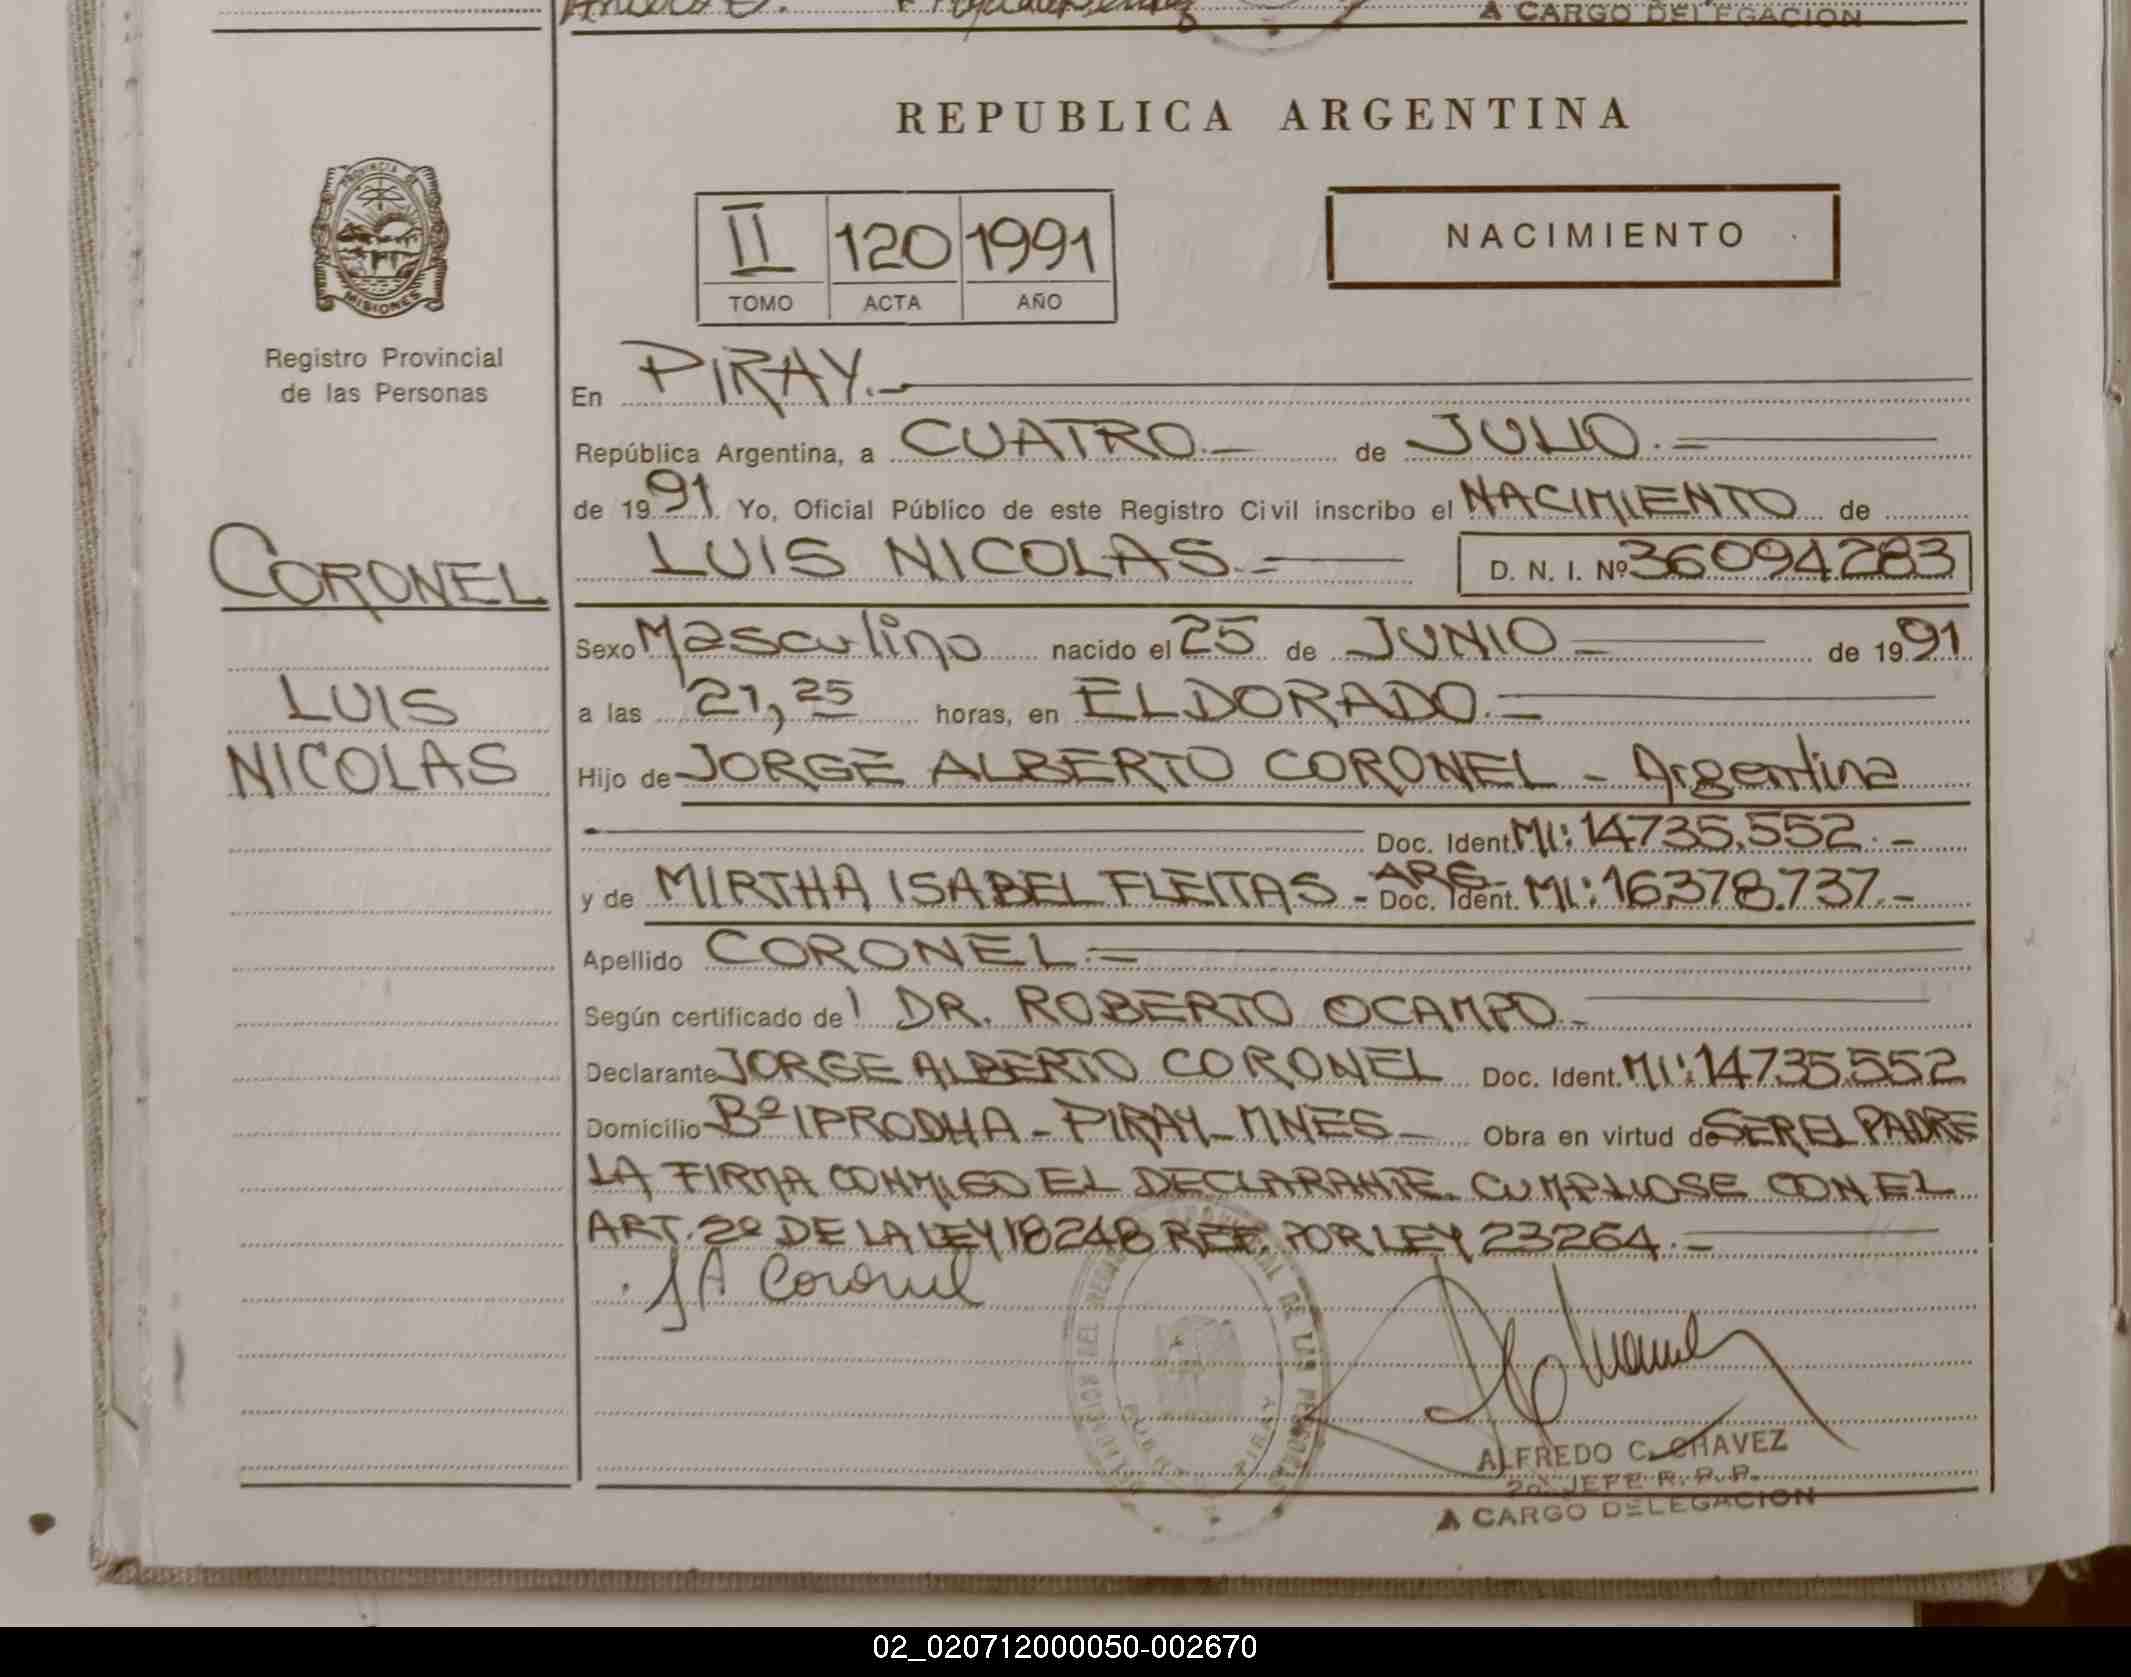 A CARGO DELEGACION
REPUBLICA ARGENTINA
PROVINCIA DE
MISIONES
Registro Provincial
de las Personas
II 120 1991
TOMO ACTA AÑO
NACIMIENTO
En PIRAY.-
República Argentina, a CUATRO.- de JULIO.-
de 1991 Yo, Oficial Público de este Registro Civil inscribo el NACIMIENTO de
LUIS NICOLAS.- D. N. I. Nº 36094283
CORONEL
LUIS
NICOLAS
Sexo Masculino nacido el 25 de JUNIO - de 1991
a las 21,25 horas, en ELDORADO.-
Hijo de JORGE ALBERTO CORONEL - Argentina
Doc. Ident. MI: 14735.552.-
y de MIRTHA ISABEL FLEITAS - ARG- Doc. Ident. MI: 16378.737.-
Apellido CORONEL.-
Según certificado del DR. ROBERTO OCAMPO.-
Declarante JORGE ALBERTO CORONEL Doc. Ident. MI: 14735.552
Domicilio Bº IPRODHA - PIRAY - MNES - Obra en virtud de SER EL PADRE
LA FIRMA CONMIGO EL DECLARANTE. CUMPLIOSE CON EL
ART. 2º DE LA LEY 18248 REF. POR LEY 23264.-
J A Coronel
ALFREDO C. CHAVEZ
2º JEFE R. P. P.
A CARGO DELEGACION
02_020712000050-002670